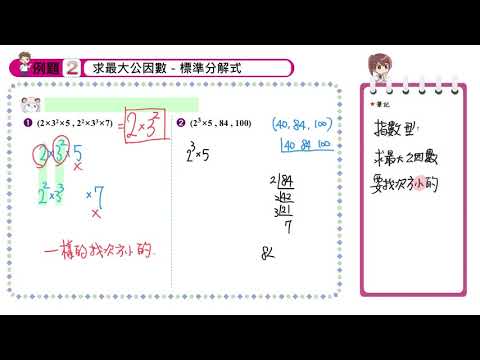 例題 2 求最大公因數－標準分解式
❶ (2×3²×5 , 2²×3³×7) = 2×3²
2×3²×5
×
2²×3³ ×7
×
一樣的找次方小的.
❷ (2³×5 , 84 , 100) (40, 84, 100)
40 84 100
2³×5
2 84
2 42
3 21
7
84
★筆記
指數型:
求最大公因數
要找次方小的